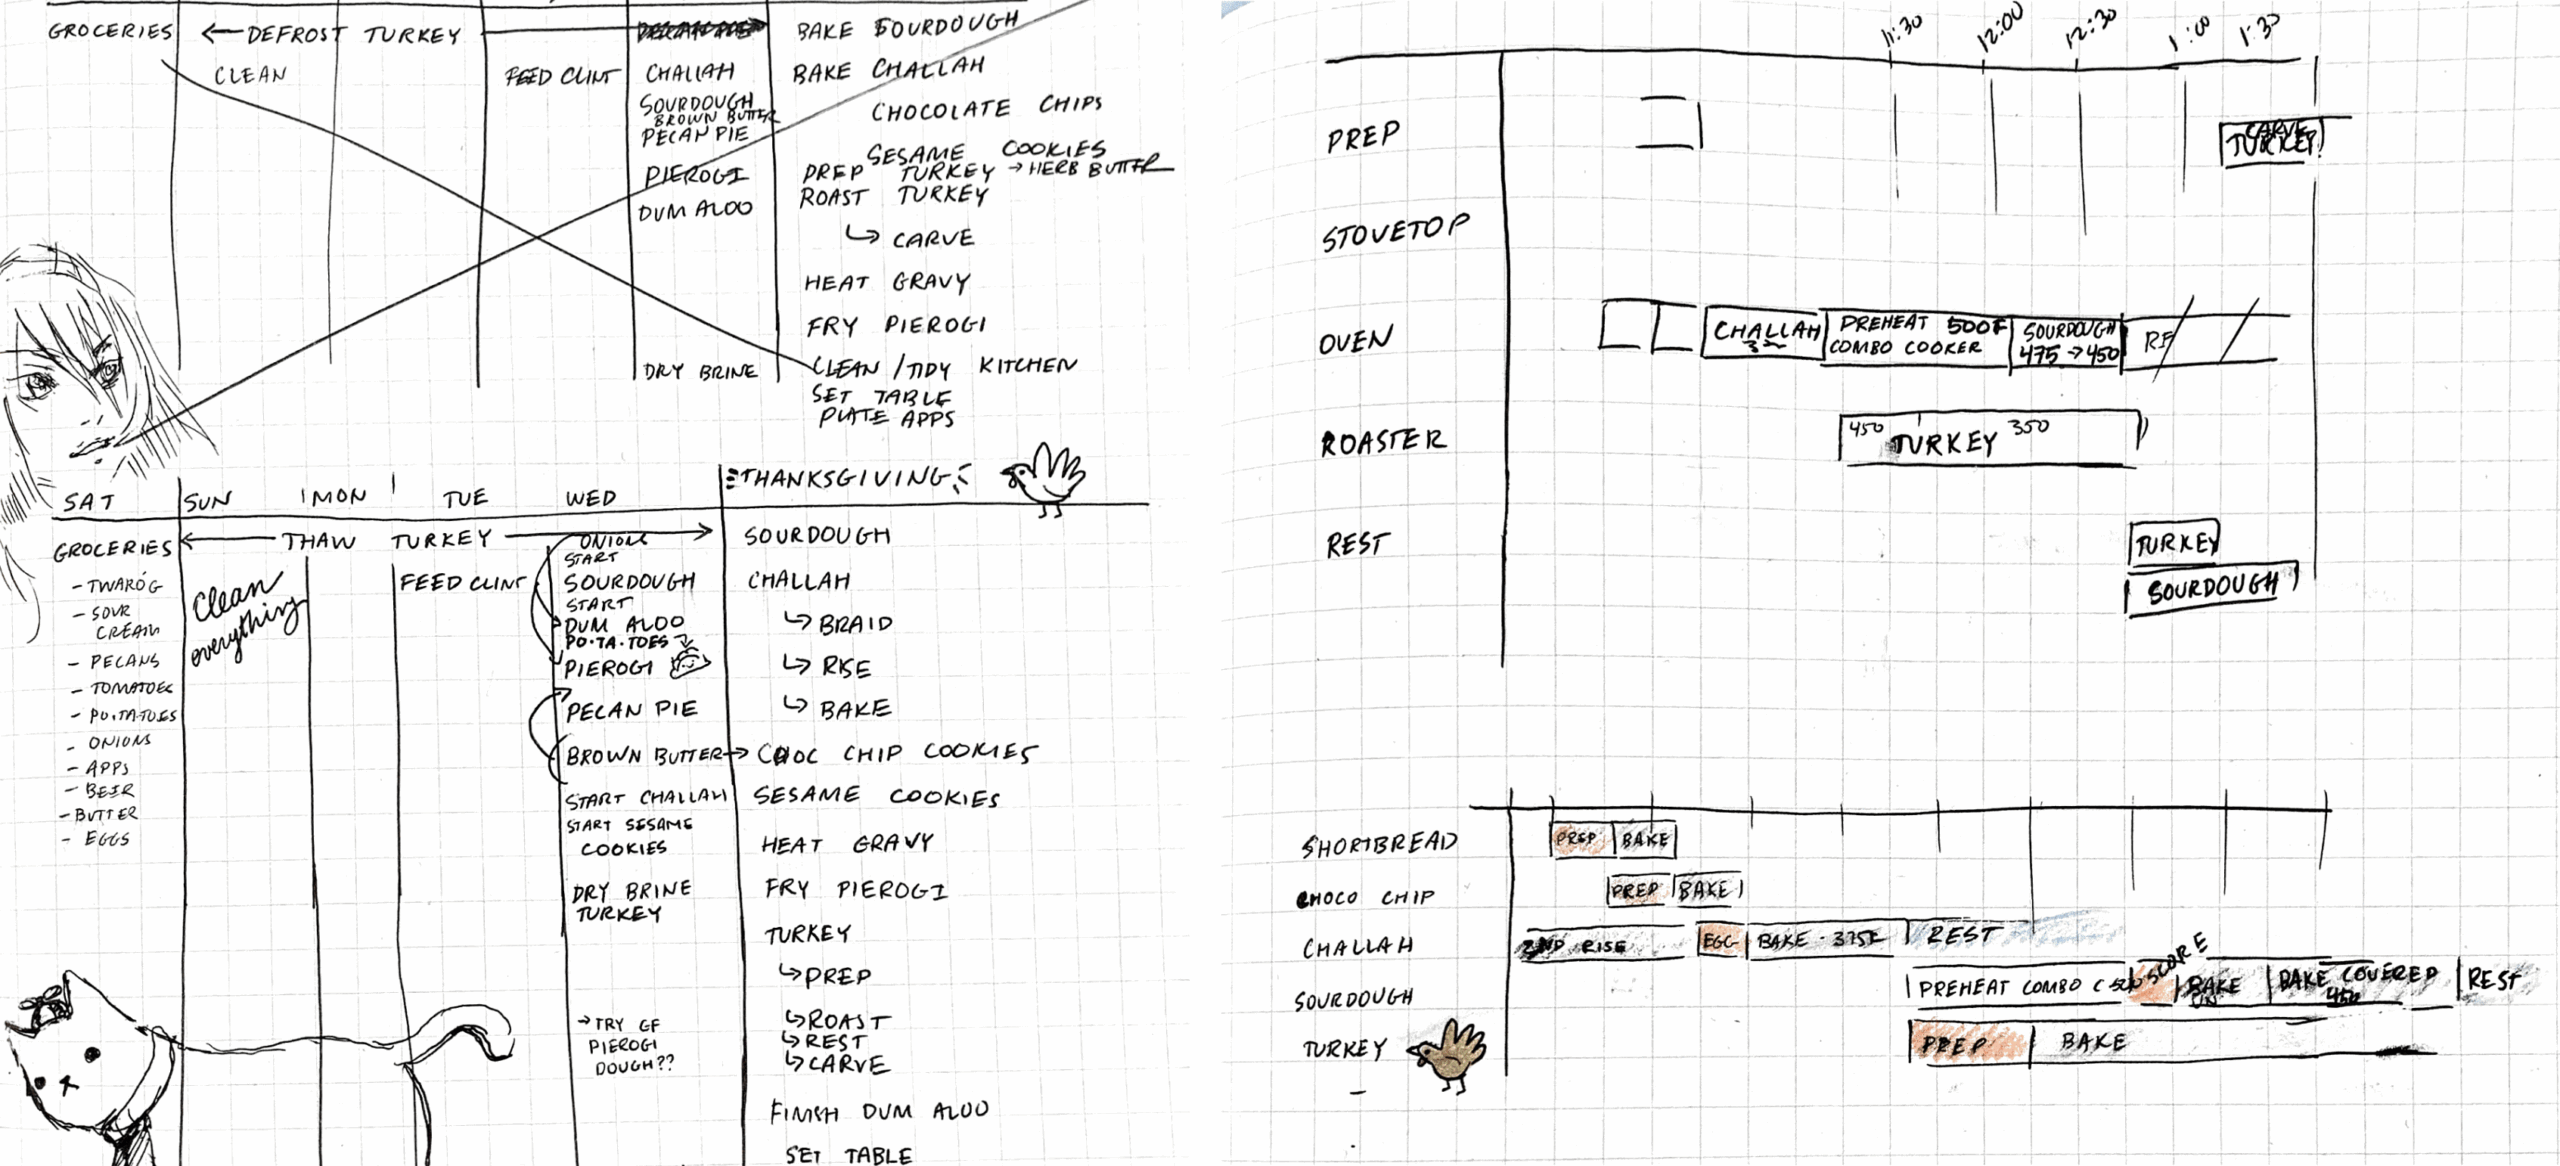 GROCERIES
← DEFROST TURKEY
BAKE SOURDOUGH
CLEAN
FEED CLINT
CHALLAH
BAKE CHALLAH
SOURDOUGH
BROWN BUTTER
PECAN PIE
CHOCOLATE CHIPS
SESAME COOKIES
PIEROGI
PREP TURKEY → HERB BUTTER
DUM ALOO
ROAST TURKEY
↳ CARVE
HEAT GRAVY
FRY PIEROGI
DRY BRINE
CLEAN / TIDY KITCHEN
SET TABLE
PLATE APPS
SAT
SUN
MON
TUE
WED
THANKSGIVING
GROCERIES
- TWARÓG
- SOUR
CREAM
- PECANS
- TOMATOES
- PO.TA.TOES
- ONIONS
- APPS
- BEER
- BUTTER
- EGGS
← THAW TURKEY →
Clean
everything
FEED CLINT
ONIONS
START
SOURDOUGH
START
DUM ALOO
PO.TA.TOES
PIEROGI
PECAN PIE
BROWN BUTTER →
START CHALLAH
START SESAME
COOKIES
DRY BRINE
TURKEY
→ TRY GF
PIEROGI
DOUGH??
SOURDOUGH
CHALLAH
↳ BRAID
↳ RISE
↳ BAKE
CHOC CHIP COOKIES
SESAME COOKIES
HEAT GRAVY
FRY PIEROGI
TURKEY
↳ PREP
↳ ROAST
↳ REST
↳ CARVE
FINISH DUM ALOO
SET TABLE
11:30
12:00
12:30
1:00
1:30
PREP
CARVE
TURKEY!
STOVETOP
OVEN
CHALLAH
PREHEAT 500F
COMBO COOKER
SOURDOUGH
475 → 450
ROASTER
450 TURKEY 350
REST
TURKEY
SOURDOUGH
SHORTBREAD
PREP
BAKE
CHOCO CHIP
PREP
BAKE
CHALLAH
2ND RISE
EGG
BAKE · 375F
REST
SOURDOUGH
PREHEAT COMBO C 500
SCORE
BAKE
UN
BAKE COVERED
450
REST
TURKEY
PREP
BAKE